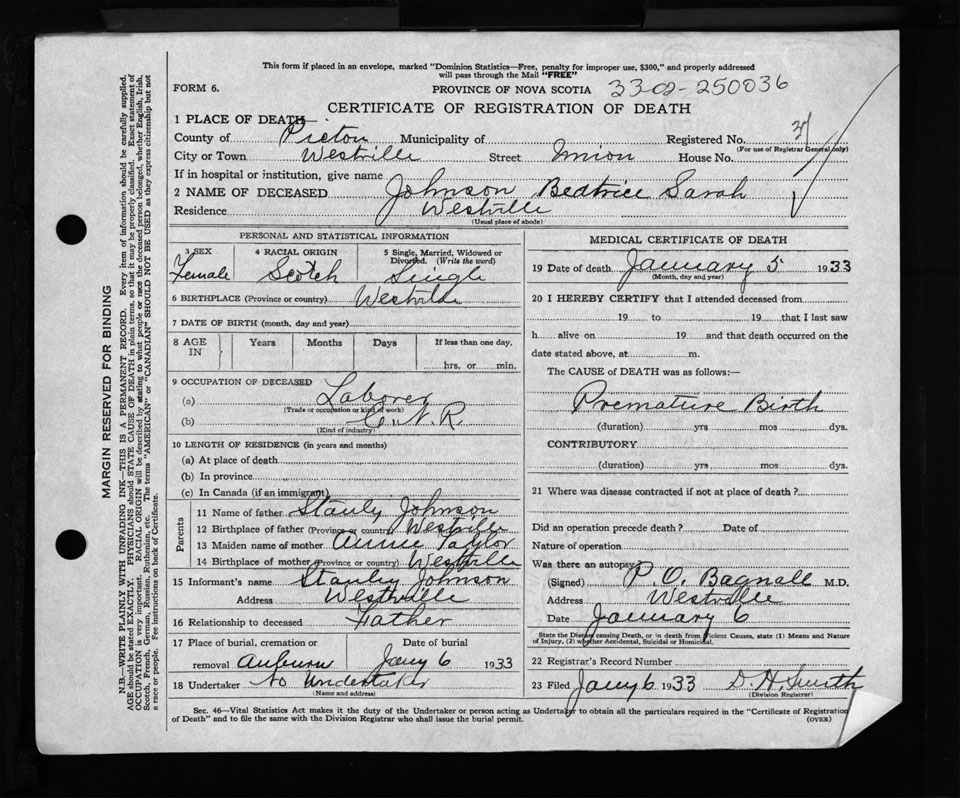 This form if placed in an envelope, marked "Dominion Statistics—Free, penalty for improper use, $300," and properly addressed
will pass through the Mail "FREE"
FORM 6.
PROVINCE OF NOVA SCOTIA 33-02-250036
CERTIFICATE OF REGISTRATION OF DEATH
1 PLACE OF DEATH
County of Pictou Municipality of Registered No. 37
(For use of Registrar General only)
City or Town Westville Street Union House No.
If in hospital or institution, give name
2 NAME OF DECEASED Johnson Beatrice Sarah
Residence Westville
(Usual place of abode)
PERSONAL AND STATISTICAL INFORMATION
3 SEX 4 RACIAL ORIGIN 5 Single, Married, Widowed or
Divorced. (Write the word)
Female Scotch Single
6 BIRTHPLACE (Province or country) Westville
7 DATE OF BIRTH (month, day and year)
8 AGE IN Years Months Days If less than one day,
hrs. or min.
9 OCCUPATION OF DECEASED
(a) Laborer
(Trade or occupation or kind of work)
(b) C. N. R.
(Kind of industry)
10 LENGTH OF RESIDENCE (in years and months)
(a) At place of death
(b) In province
(c) In Canada (if an immigrant)
Parents
11 Name of father Stanly Johnson
12 Birthplace of father (Province or country) Westville
13 Maiden name of mother Annie Taylor
14 Birthplace of mother (Province or country) Westville
15 Informant's name Stanley Johnson
Address Westville
16 Relationship to deceased Father
17 Place of burial, cremation or Date of burial
removal Auburn Jany 6 1933
18 Undertaker No Undertaker
(Name and address)
MEDICAL CERTIFICATE OF DEATH
19 Date of death January 5 1933
(Month, day and year)
20 I HEREBY CERTIFY that I attended deceased from
19 to 19 , that I last saw
h alive on 19 and that death occurred on the
date stated above, at m.
The CAUSE of DEATH was as follows:—
Premature Birth
(duration) yrs mos dys.
CONTRIBUTORY
(duration) yrs mos dys.
21 Where was disease contracted if not at place of death?
Did an operation precede death? Date of
Nature of operation
Was there an autopsy
(Signed) P. O. Bagnall M.D.
Address Westville
Date January 6
State the Disease causing Death, or in death from Violent Causes, state (1) Means and Nature
of Injury, (2) whether Accidental, Suicidal or Homicidal.
22 Registrar's Record Number
23 Filed Jany 6 1933 D. H. Smith
(Division Registrar)
Sec. 46—Vital Statistics Act makes it the duty of the Undertaker or person acting as Undertaker to obtain all the particulars required in the "Certificate of Registration
of Death" and to file the same with the Division Registrar who shall issue the burial permit.
(OVER)
MARGIN RESERVED FOR BINDING
N.B.—WRITE PLAINLY WITH UNFADING INK—THIS IS A PERMANENT RECORD. Every item of information should be carefully supplied.
AGE should be stated EXACTLY. PHYSICIANS should STATE CAUSE OF DEATH in plain terms, so that it may be properly classified. Exact statement of
OCCUPATION is very important. RACIAL ORIGIN will be described by stating to what people or race the deceased person belonged, whether English, Irish,
Scotch, French, German, Russian, Ruthenian, etc. The terms "AMERICAN" or "CANADIAN" SHOULD NOT BE USED as they express citizenship but not
a race or people. Fee instructions on back of Certificate.